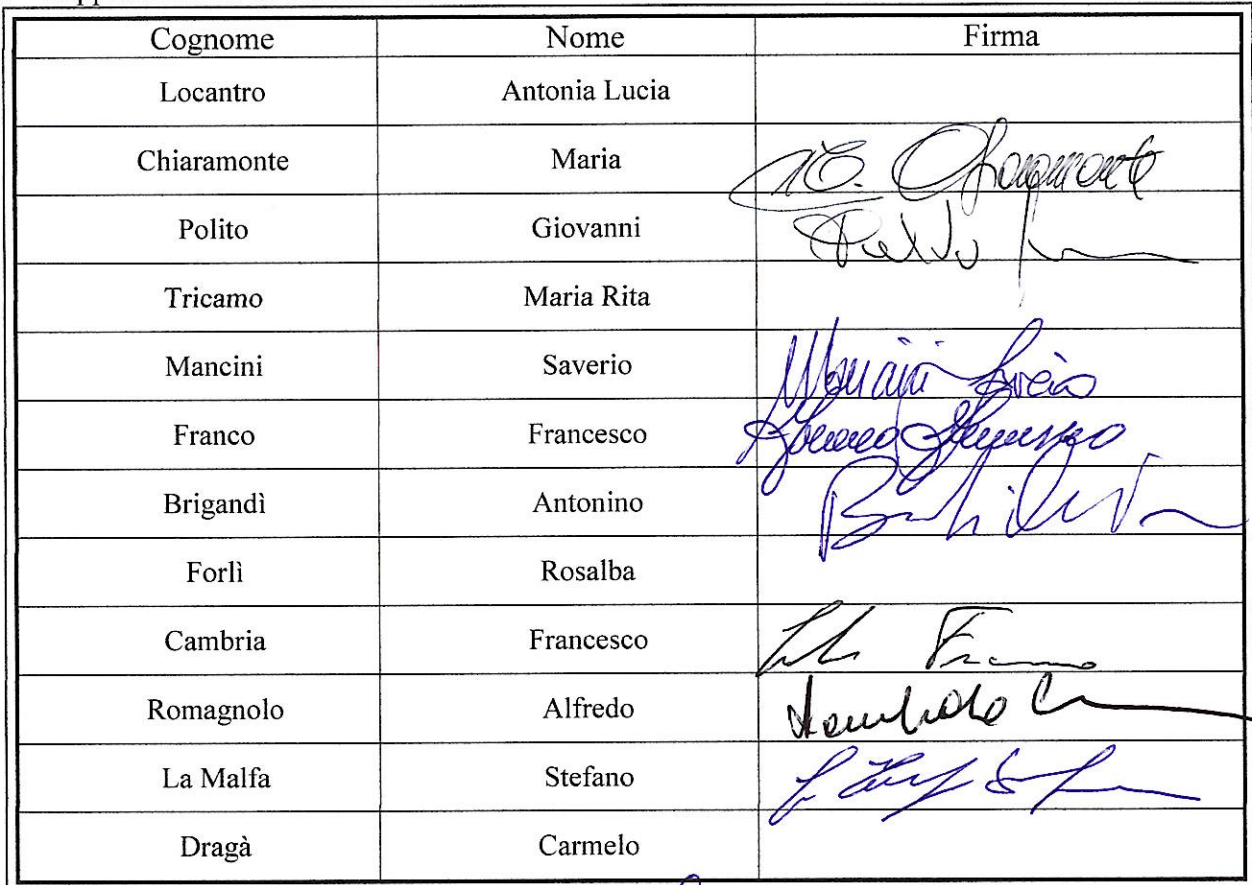 Cognome Nome Firma
Locantro Antonia Lucia
Chiaramonte Maria
Polito Giovanni
Tricamo Maria Rita
Mancini Saverio
Franco Francesco
Brigandì Antonino
Forlì Rosalba
Cambria Francesco
Romagnolo Alfredo
La Malfa Stefano
Dragà Carmelo